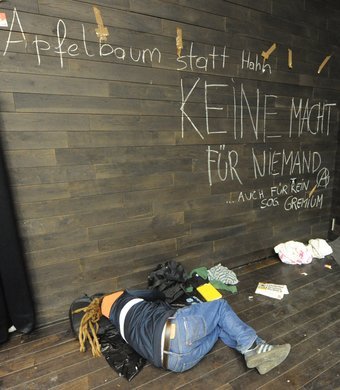 Apfelbaum statt Hahn
KEINE MACHT
FÜR NIEMAND
... AUCH FÜR KEIN
SOG. GREMIUM